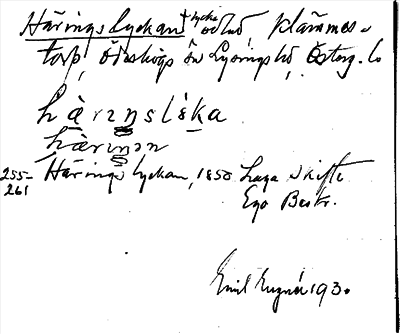 Häringslyckan lycka odlad, Klämmes-
torp, Ödeshögs sn Lysings hd, Österg. l.
hàrɪŋslʹɛka
hàrɪŋən
255-261 Häringslyckan, 1850 Laga Skifte
Ego Beskr.
Emil 1930